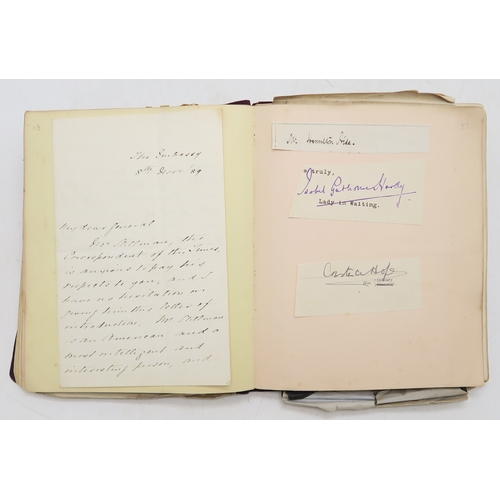 The Embassy
8th Novr '89
My dear General
Mr Stillman, the
Correspondent of the Times,
is anxious to pay his
respects to you, and I
have no hesitation in
giving him this letter of
introduction. Mr Stillman
is an American and a
most intelligent and
interesting person, and
Mr Hamilton Aïdé.
truly,
Isobel Gathorne Hardy
Lady in Waiting.
Constance Hope